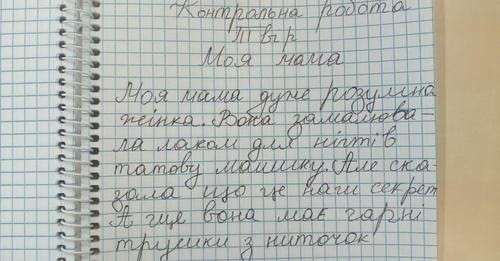 Контрольна робота
Твір
Моя мама
Моя мама дуже розумна
жінка. Вона замалюва-
ла лаком для нігтів
татову машину. Але ска-
зала що це наш секрет
А ще вона має гарні
трусики з ниточок